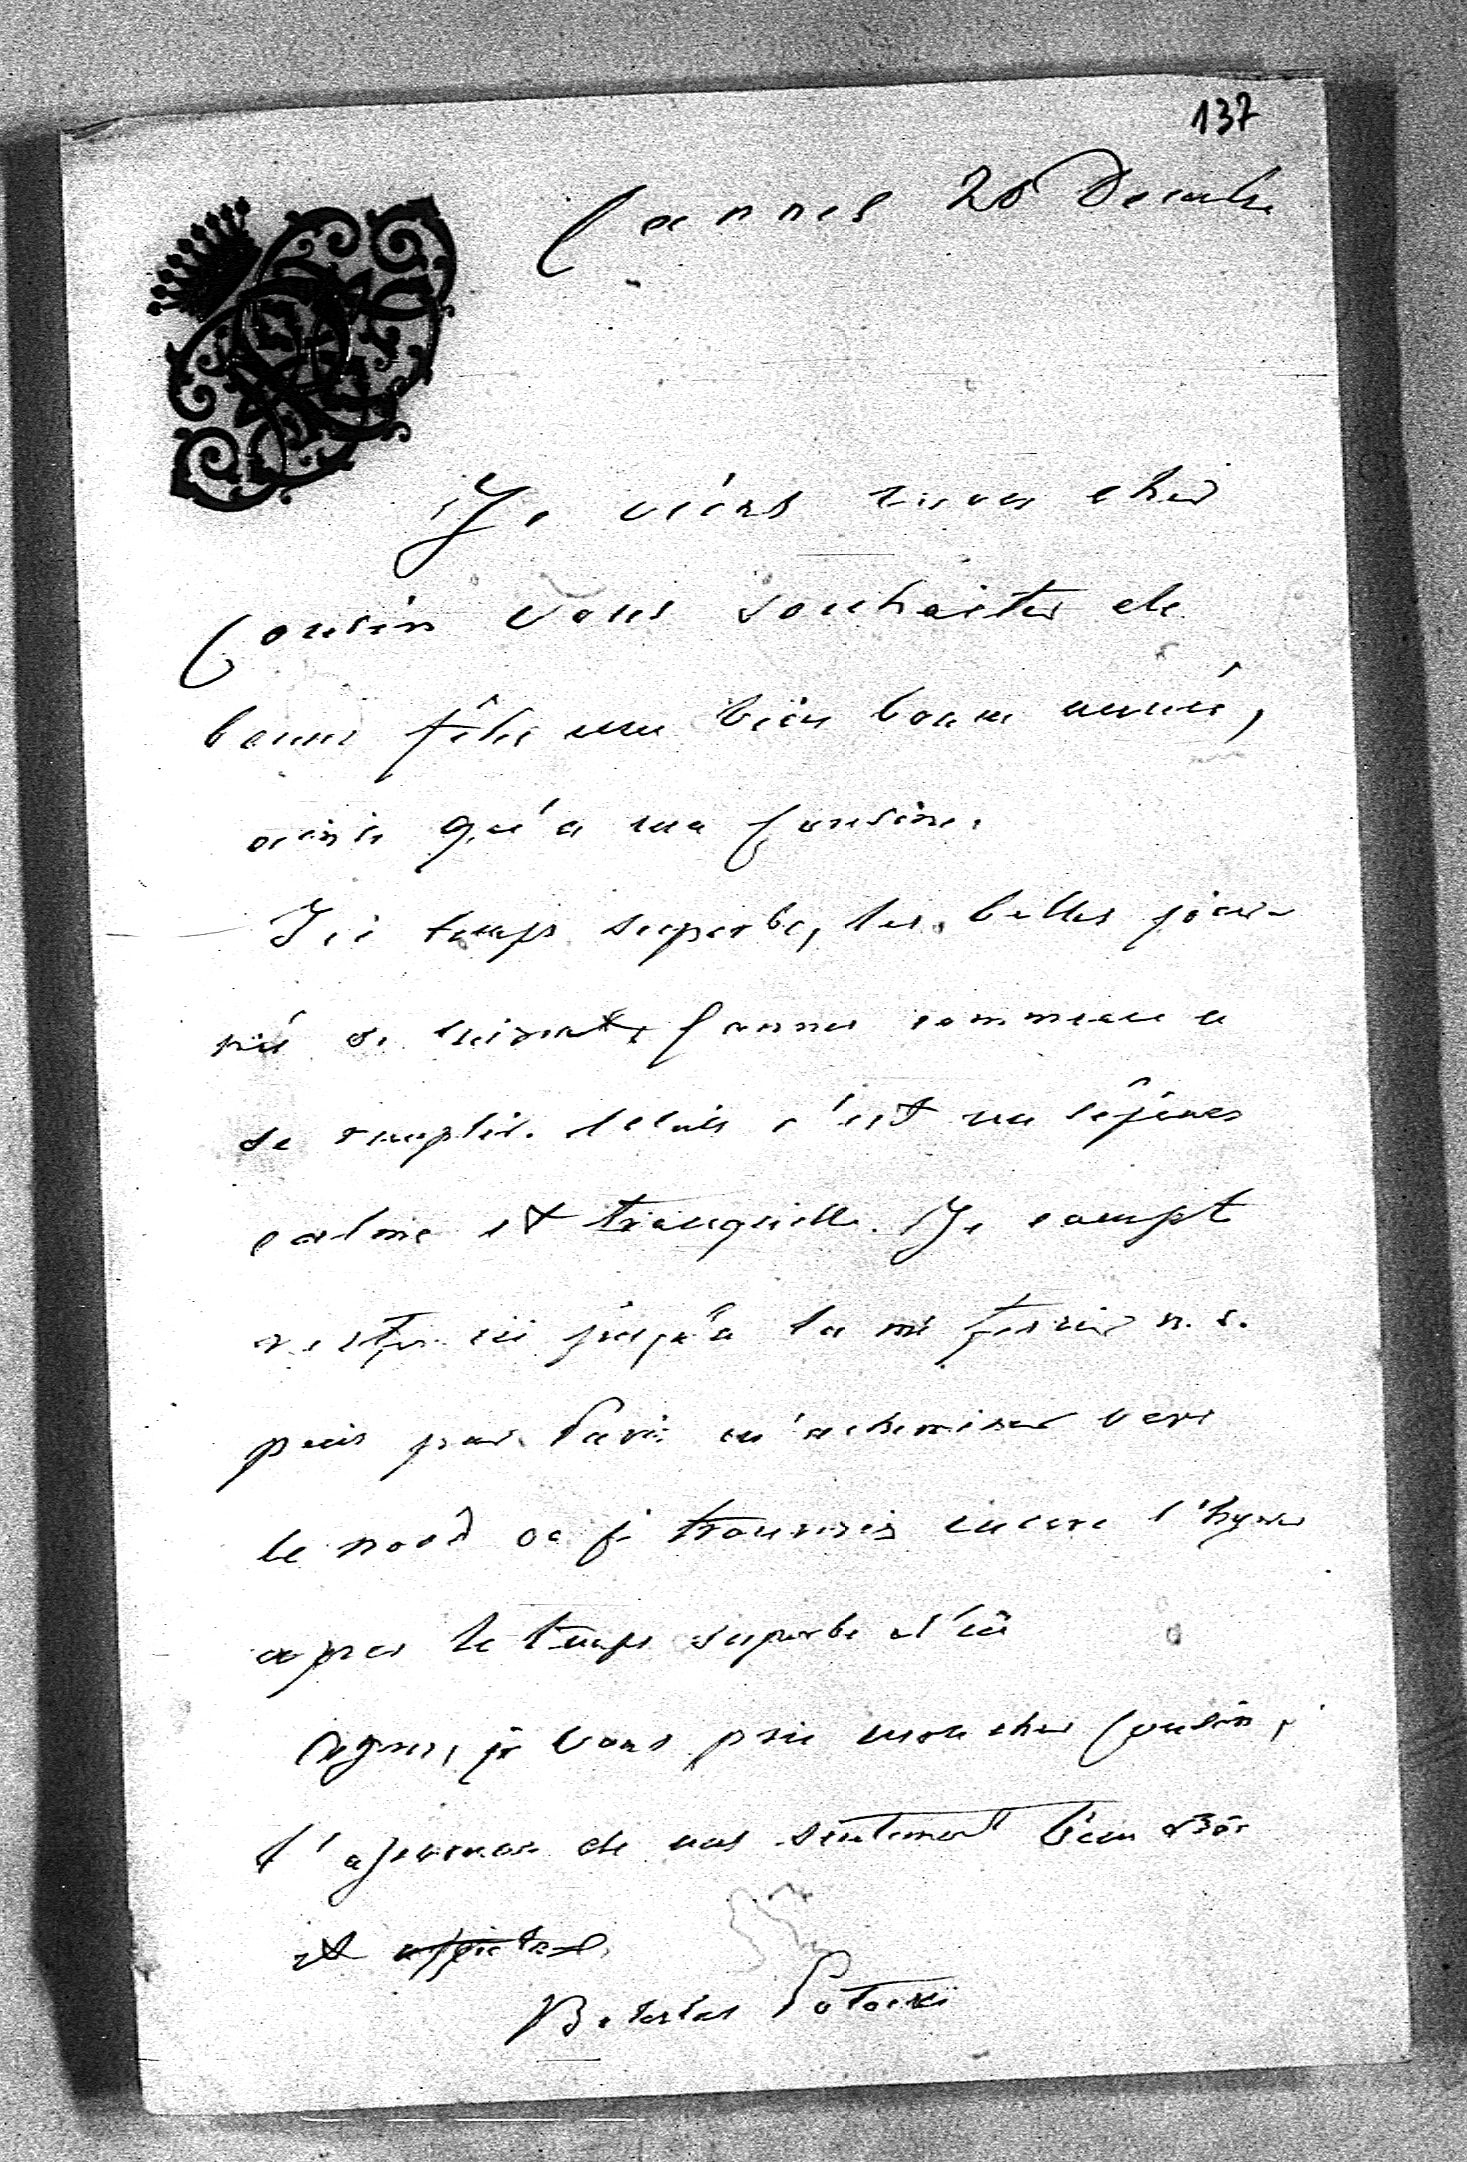 137
Cannes 20 Decembre
Je viens mon cher
Cousin vous souhaiter de
bonnes fêtes une bien bonne année,
ainsi qu'a ma Cousine.
Ici temps superbe, les belles jour-
née se suivent, Cannes commence a
se remplir. Mais c'est un séjour
calme et tranquille. Je compte
rester ici jusqu'à la mi fevrier n. s.
puis par Paris m'acheminer vers
le nord ou je trouverais encore l'hyver
apres le temps superbe d'ici
Agréez, je vous prie mon cher Cousin,
l' de mes sentiment bien
et affectueux
Boleslas Potocki